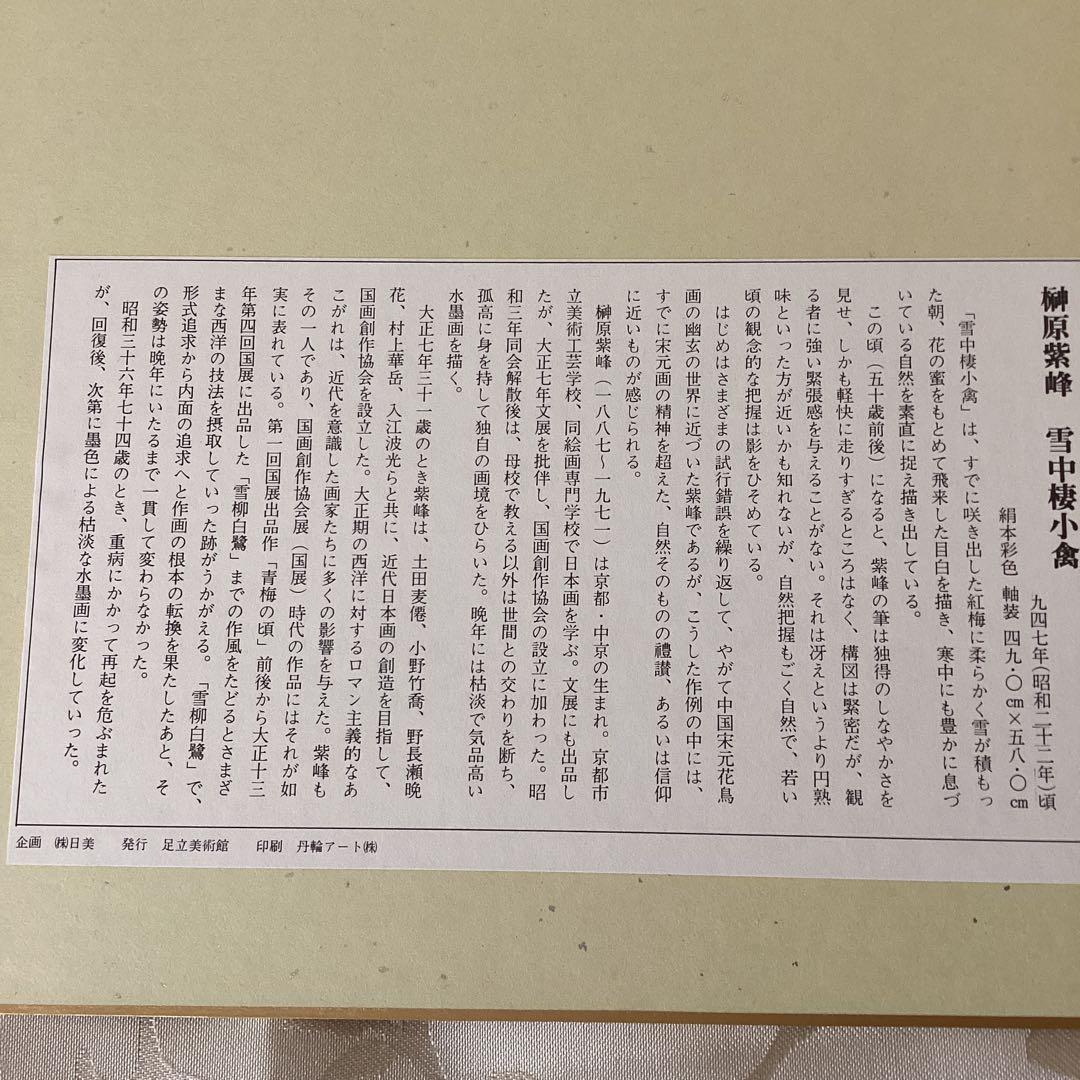 榊原紫峰　雪中棲小禽
九四七年(昭和二十二年)頃
絹本彩色　軸装　四九・〇㎝×五八・〇㎝
「雪中棲小禽」は、すでに咲き出した紅梅に柔らかく雪が積もっ
た朝、花の蜜をもとめて飛来した目白を描き、寒中にも豊かに息づ
いている自然を素直に捉え描き出している。
この頃(五十歳前後)になると、紫峰の筆は独得のしなやかさを
見せ、しかも軽快に走りすぎるところはなく、構図は緊密だが、観
る者に強い緊張感を与えることがない。それは冴えというより円熟
味といった方が近いかも知れないが、自然把握もごく自然で、若い
頃の観念的な把握は影をひそめている。
はじめはさまざまの試行錯誤を繰り返して、やがて中国宋元花鳥
画の幽玄の世界に近づいた紫峰であるが、こうした作例の中には、
すでに宋元画の精神を超えた、自然そのものの礼讃、あるいは信仰
に近いものが感じられる。
榊原紫峰(一八八七〜一九七一)は京都・中京の生まれ。京都市
立美術工芸学校、同絵画専門学校で日本画を学ぶ。文展にも出品し
たが、大正七年文展を批判し、国画創作協会の設立に加わった。昭
和三年同会解散後は、母校で教える以外は世間との交わりを断ち、
孤高に身を持して独自の画境をひらいた。晩年には枯淡で気品高い
水墨画を描く。
大正七年三十一歳のとき紫峰は、土田麦僊、小野竹喬、野長瀬晩
花、村上華岳、入江波光らと共に、近代日本画の創造を目指して、
国画創作協会を設立した。大正期の西洋に対するロマン主義的なあ
こがれは、近代を意識した画家たちに多くの影響を与えた。紫峰も
その一人であり、国画創作協会展(国展)時代の作品にはそれが如
実に表れている。第一回国展出品作「青梅の頃」前後から大正十三
年第四回国展に出品した「雪柳白鷺」までの作風をたどるとさまざ
まな西洋の技法を摂取していった跡がうかがえる。「雪柳白鷺」で、
形式追求から内面の追求へと作画の根本の転換を果たしたあと、そ
の姿勢は晩年にいたるまで一貫して変わらなかった。
昭和三十六年七十四歳のとき、重病にかかって再起を危ぶまれた
が、回復後、次第に墨色による枯淡な水墨画に変化していった。
企画　㈱日美　発行　足立美術館　印刷　丹輪アート㈱